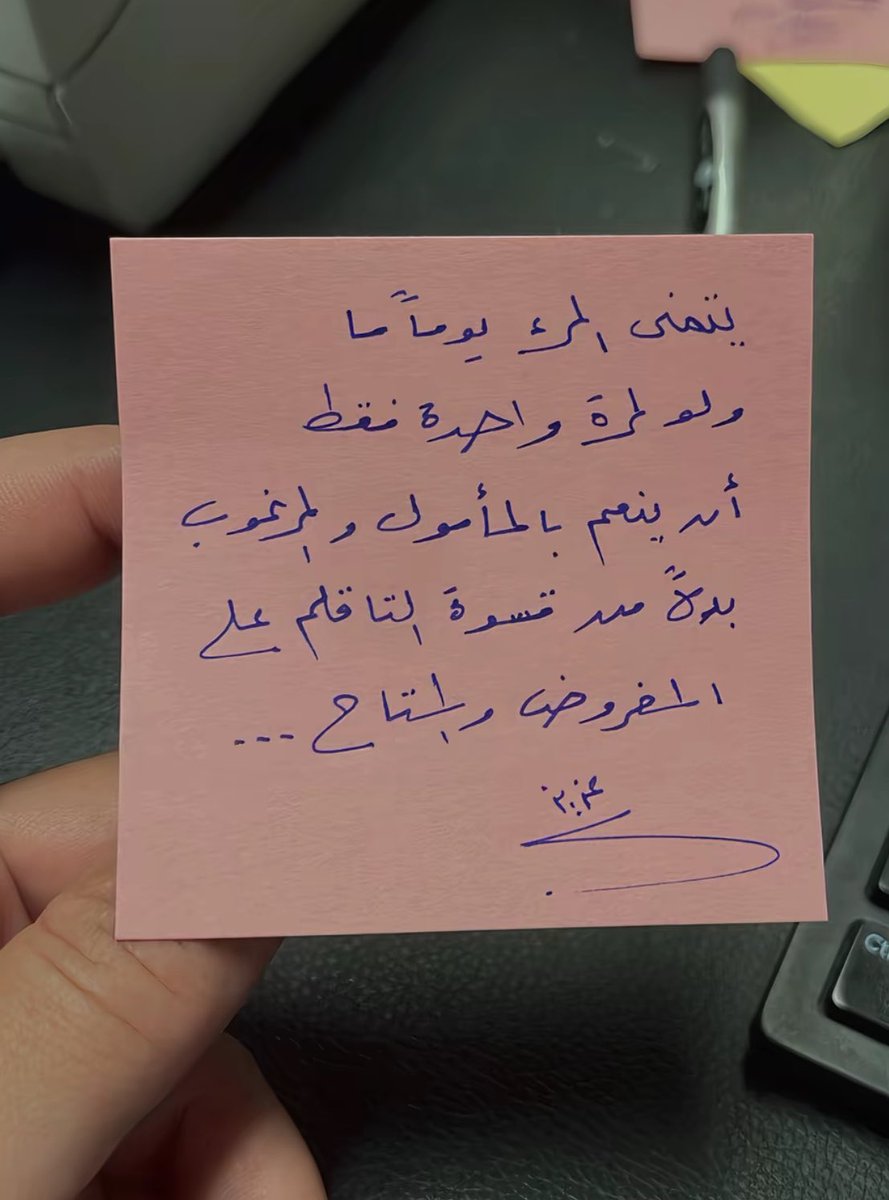 يتمنى المرء يوماً ما
ولو لمرة واحدة فقط
أن ينعم بالمأمول والمرغوب
بدلاً من قسوة التأقلم على
المفروض والمتاح ...
عزيز